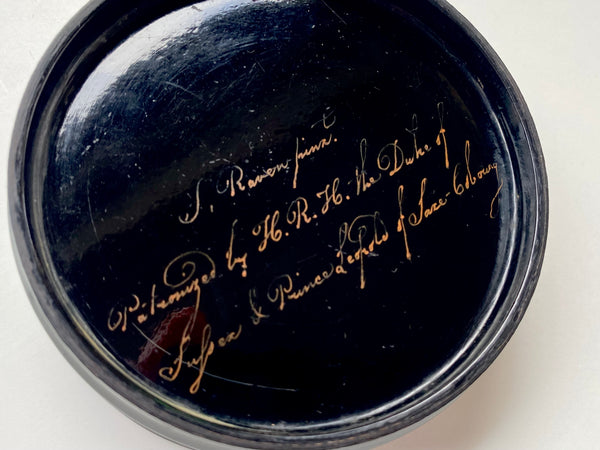 S, Raven pinx.t
Patronized by H. R. H. the Duke of
Sussex & Prince Leopold of Saxe-Cobourg